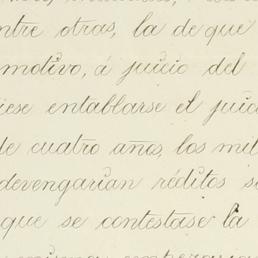 ntre otras, la de que
motivo, á juicio del
iese entablarse el juic
de cuatro años, los mil
devengarian réditos s
que se contestase la